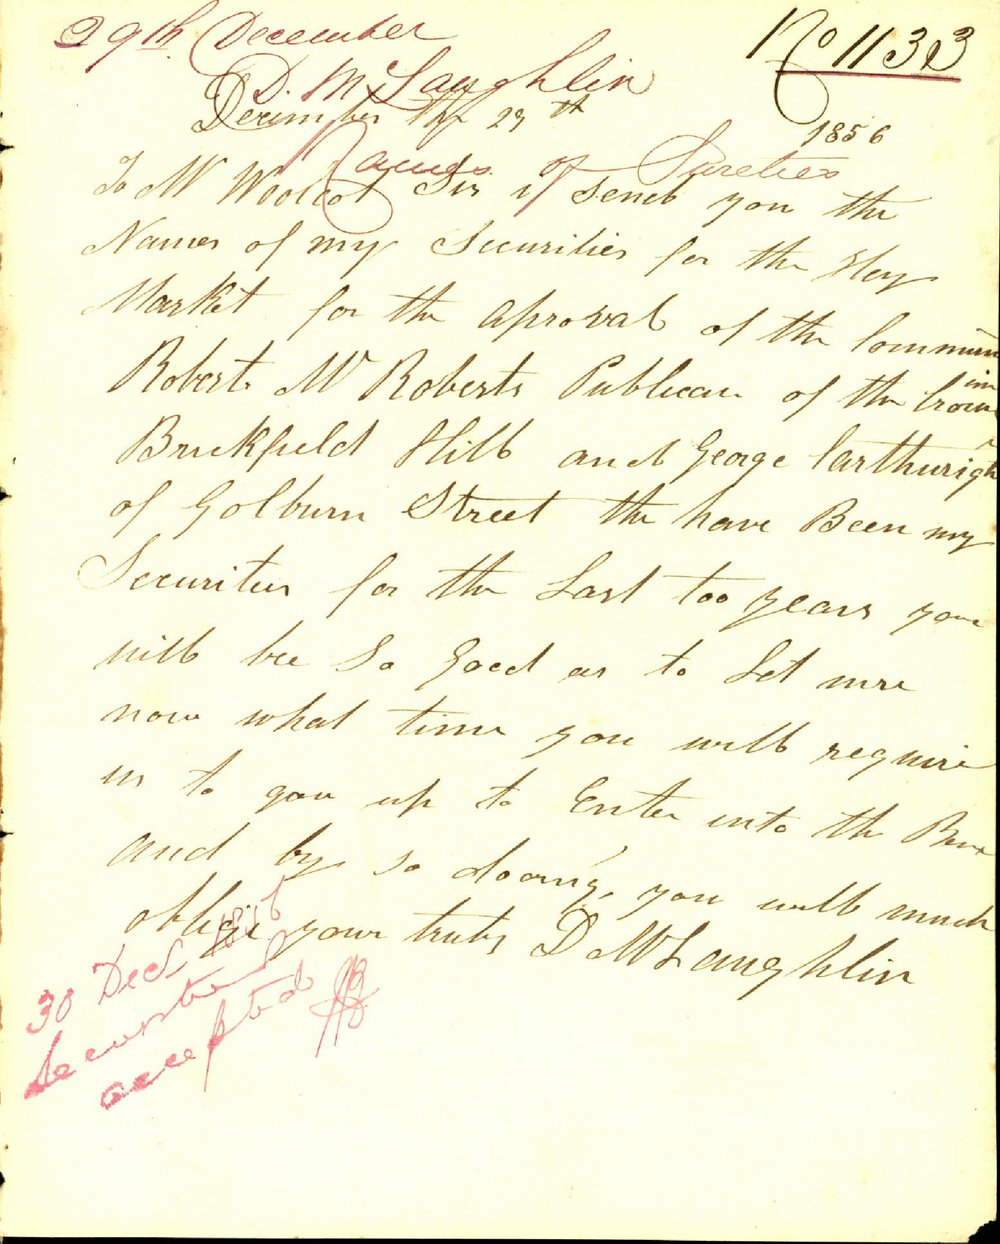 29th December
No 1133
D. McLaughlin
December the 29th
1856
Names of Sureties
To Mr Woolcot Sir i send you the
Names of my Securities for the Hay
Market for the aproval of the
Robert Mc Roberts Publican of the
Brickfield Hill and George Carthwrigh
of Golburn Street the have Been my
Securities for the Last too years you
will bee So Good as to Let mee
now what time you will require
us to gou up to Enter into the
and by so dooing, you will much
oblige your truly D McLaughlin
30 Decr 1856
Securities
accepted